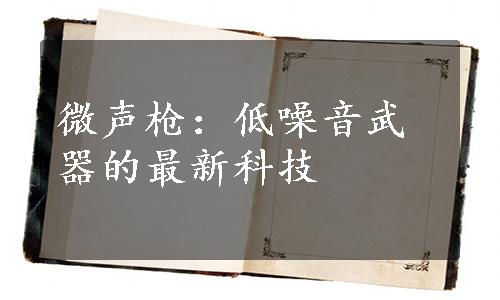 微声枪：低噪音武
器的最新科技